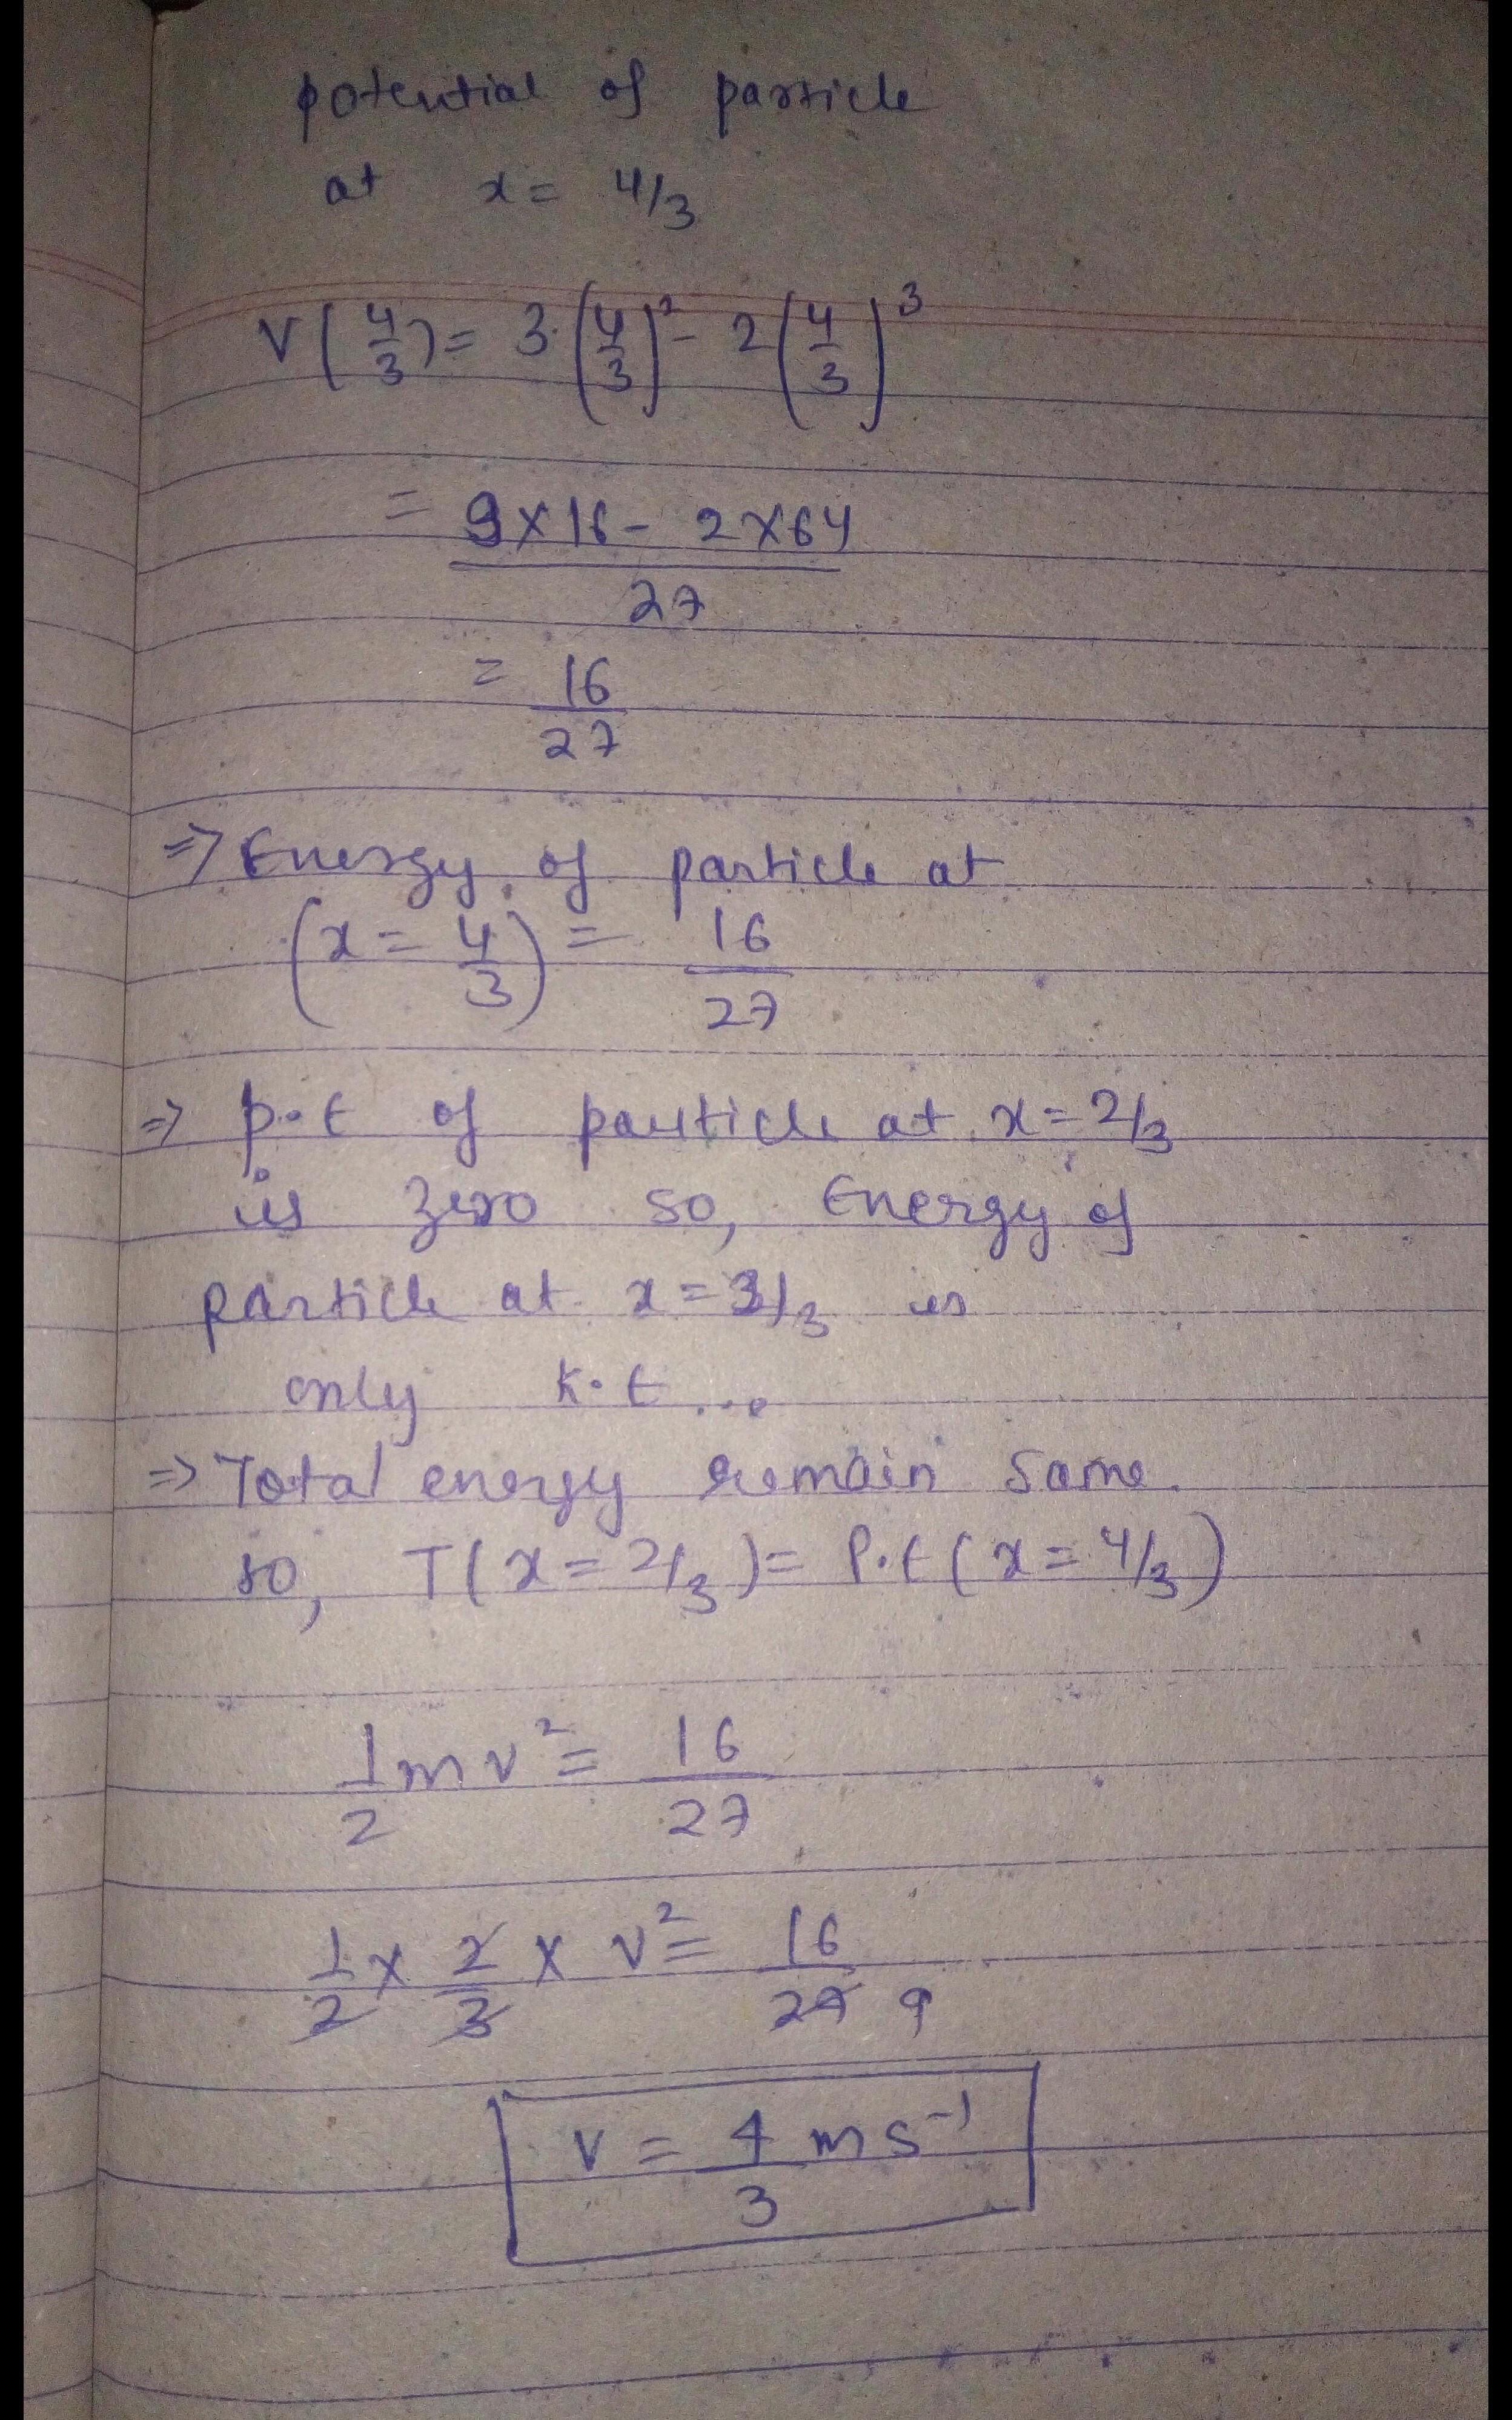 potential of particle
at x = 4/3
V(4/3) = 3·(4/3)² - 2(4/3)³
= 9×16 - 2×64
27
= 16
27
⇒ Energy of particle at
(x = 4/3) = 16/27
⇒ p.E of particle at x = 2/3
is zero so, Energy of
particle at x = 3/3 is
only K.E ...
⇒ Total energy remain same.
so, T(x = 2/3) = P.E (x = 4/3)
1/2 mv² = 16/27
1/2 × 2/3 × v² = 16/27 9
v = 4/3 ms⁻¹